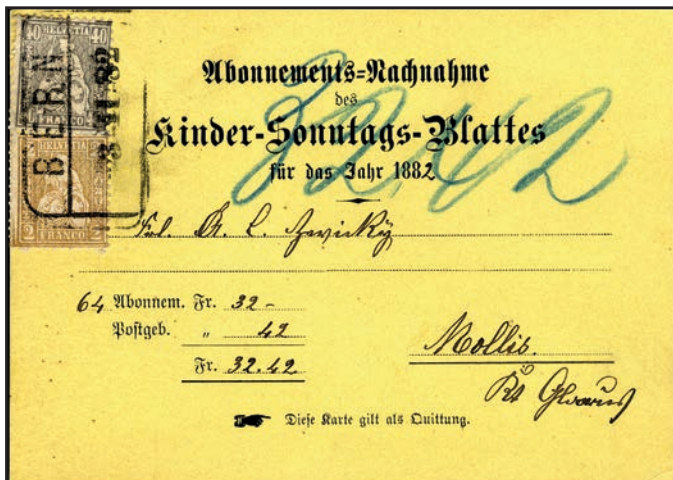 40 HELVETIA 40
FRANCO
BERN
HELVETIA
2 FRANCO 2
Abonnements-Nachnahme
des
Kinder-Sonntags-Blattes
für das Jahr 1882
32.42
Frl. A. C. Zwicky
64 Abonnem. Fr. 32 -
Postgeb. " 42
Fr. 32.42
Mollis.
Kt Glarus
Diese Karte gilt als Quittung.